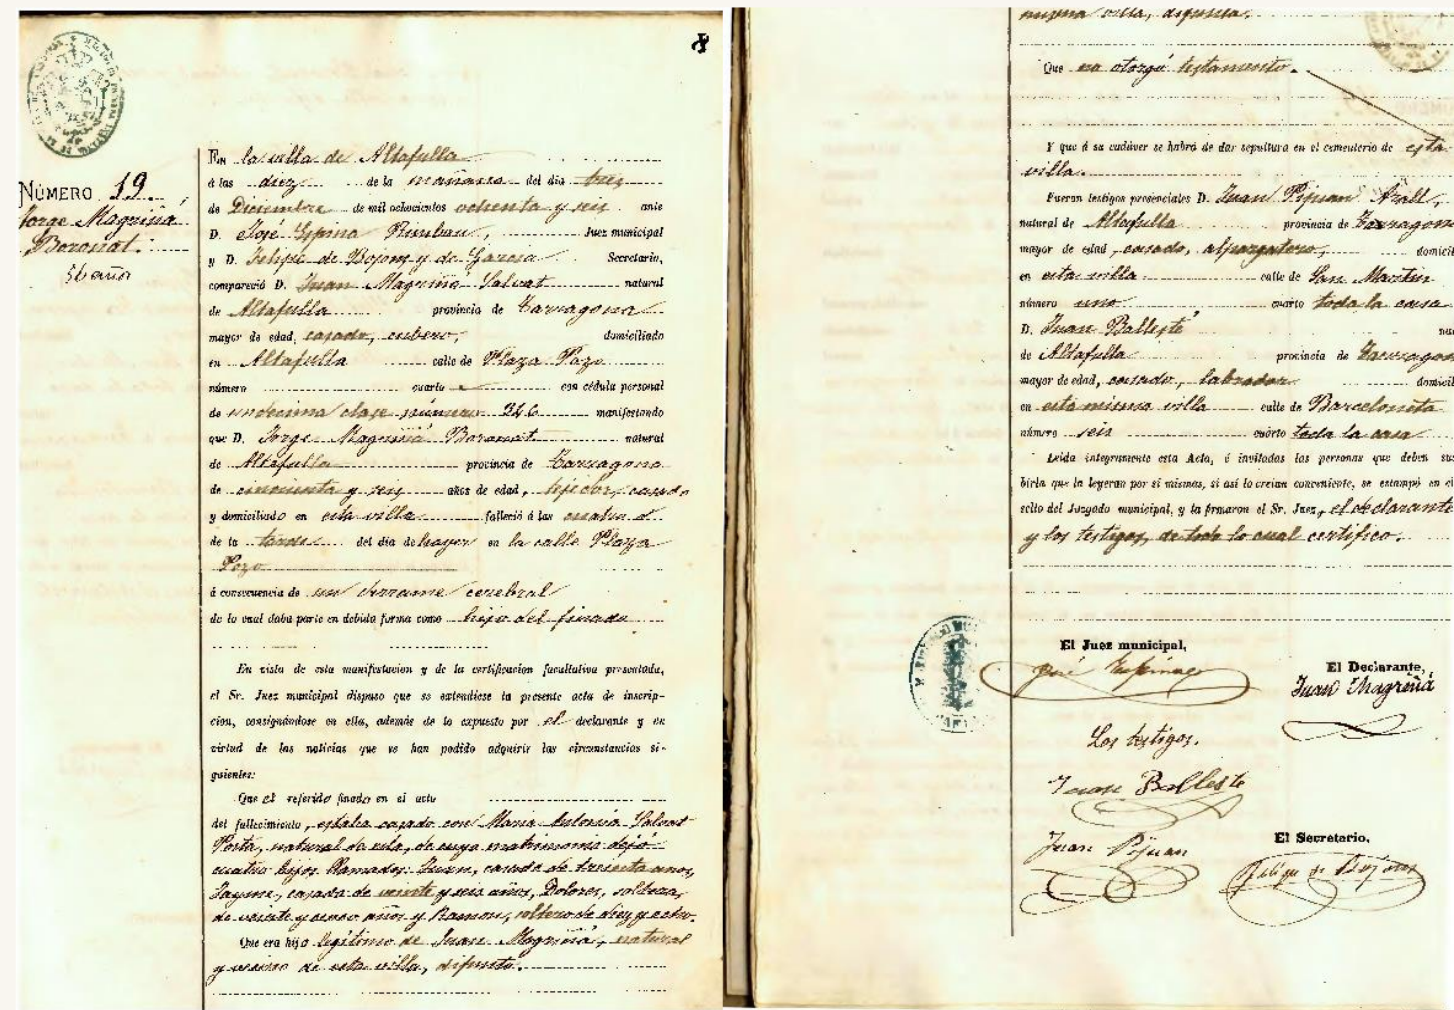 8
NÚMERO 19
Jorge Magriñá
Boronat.
56 años
EN la villa de Altafulla
á las diez de la mañana del dia tres
de Diciembre de mil ochocientos ochenta y seis ante
D. José Espina Rimbau, Juez municipal
y D. Felipe de Bojons y de García Secretario,
compareció D. Juan Magriñá Salvat natural
de Altafulla provincia de Tarragona
mayor de edad, casado, cubero, domiciliado
en Altafulla calle de Plaza Pozo
número cuarto con cédula personal
de undécima clase número 316 manifestando
que D. Jorge Magriñá Boronat natural
de Altafulla provincia de Tarragona
de cincuenta y seis años de edad, tejedor, casado
y domiciliado en esta villa falleció á las cuatro
de la tarde del dia de hayer en la calle Plaza
Pozo
á consecuencia de un derrame cerebral
de lo cual daba parte en debida forma como hijo del finado
En vista de esta manifestacion y de la certificacion facultativa presentada,
el Sr. Juez municipal dispuso que se extendiese la presente acta de inscrip-
cion, consignándose en ella, además de lo expuesto por el declarante y en
virtud de las noticias que se han podido adquirir las circunstancias si-
guientes:
Que el referido finado en el acto
del fallecimiento, estaba casado con Maria Antonia Salvat
Porta, natural de esta, de cuyo matrimonio dejó
cuatro hijos llamados: Juan, casado de treinta anos,
Jayme, casado de veinte y seis años, Dolores, soltera,
de veinte y cinco años y Ramon, soltero de diez y ocho.
Que era hijo legítimo de Juan Magriñá, natural
y vecino de esta villa, difunto.
misma villa, difunta.
Que no otorgó testamento.
Y que á su cadáver se habrá de dar sepultura en el cementerio de esta
villa.
Fueron testigos presenciales D. Juan Pijuan
natural de Altafulla provincia de Tarragona
mayor de edad, casado, alpargatero, domicil
en esta villa calle de San Martin
número uno cuarto toda la casa
D. Juan Ballesté nat
de Altafulla provincia de Tarragona
mayor de edad, casado, labrador domicil
en esta misma villa calle de Barceloneta
número seis cuarto toda la casa
Leida íntegramente esta Acta, é invitadas las personas que deben sus
birla que la leyeran por sí mismas, si así lo creían conveniente, se estampó en el
sello del Juzgado municipal, y la firmaron el Sr. Juez, el declarante
y los testigos, de todo lo cual certifico.
El Juez municipal,
José Espina
El Declarante,
Juan Magriñá
Los testigos.
Juan Balleste
Juan Pijuan
El Secretario,
Felipe de Bojons